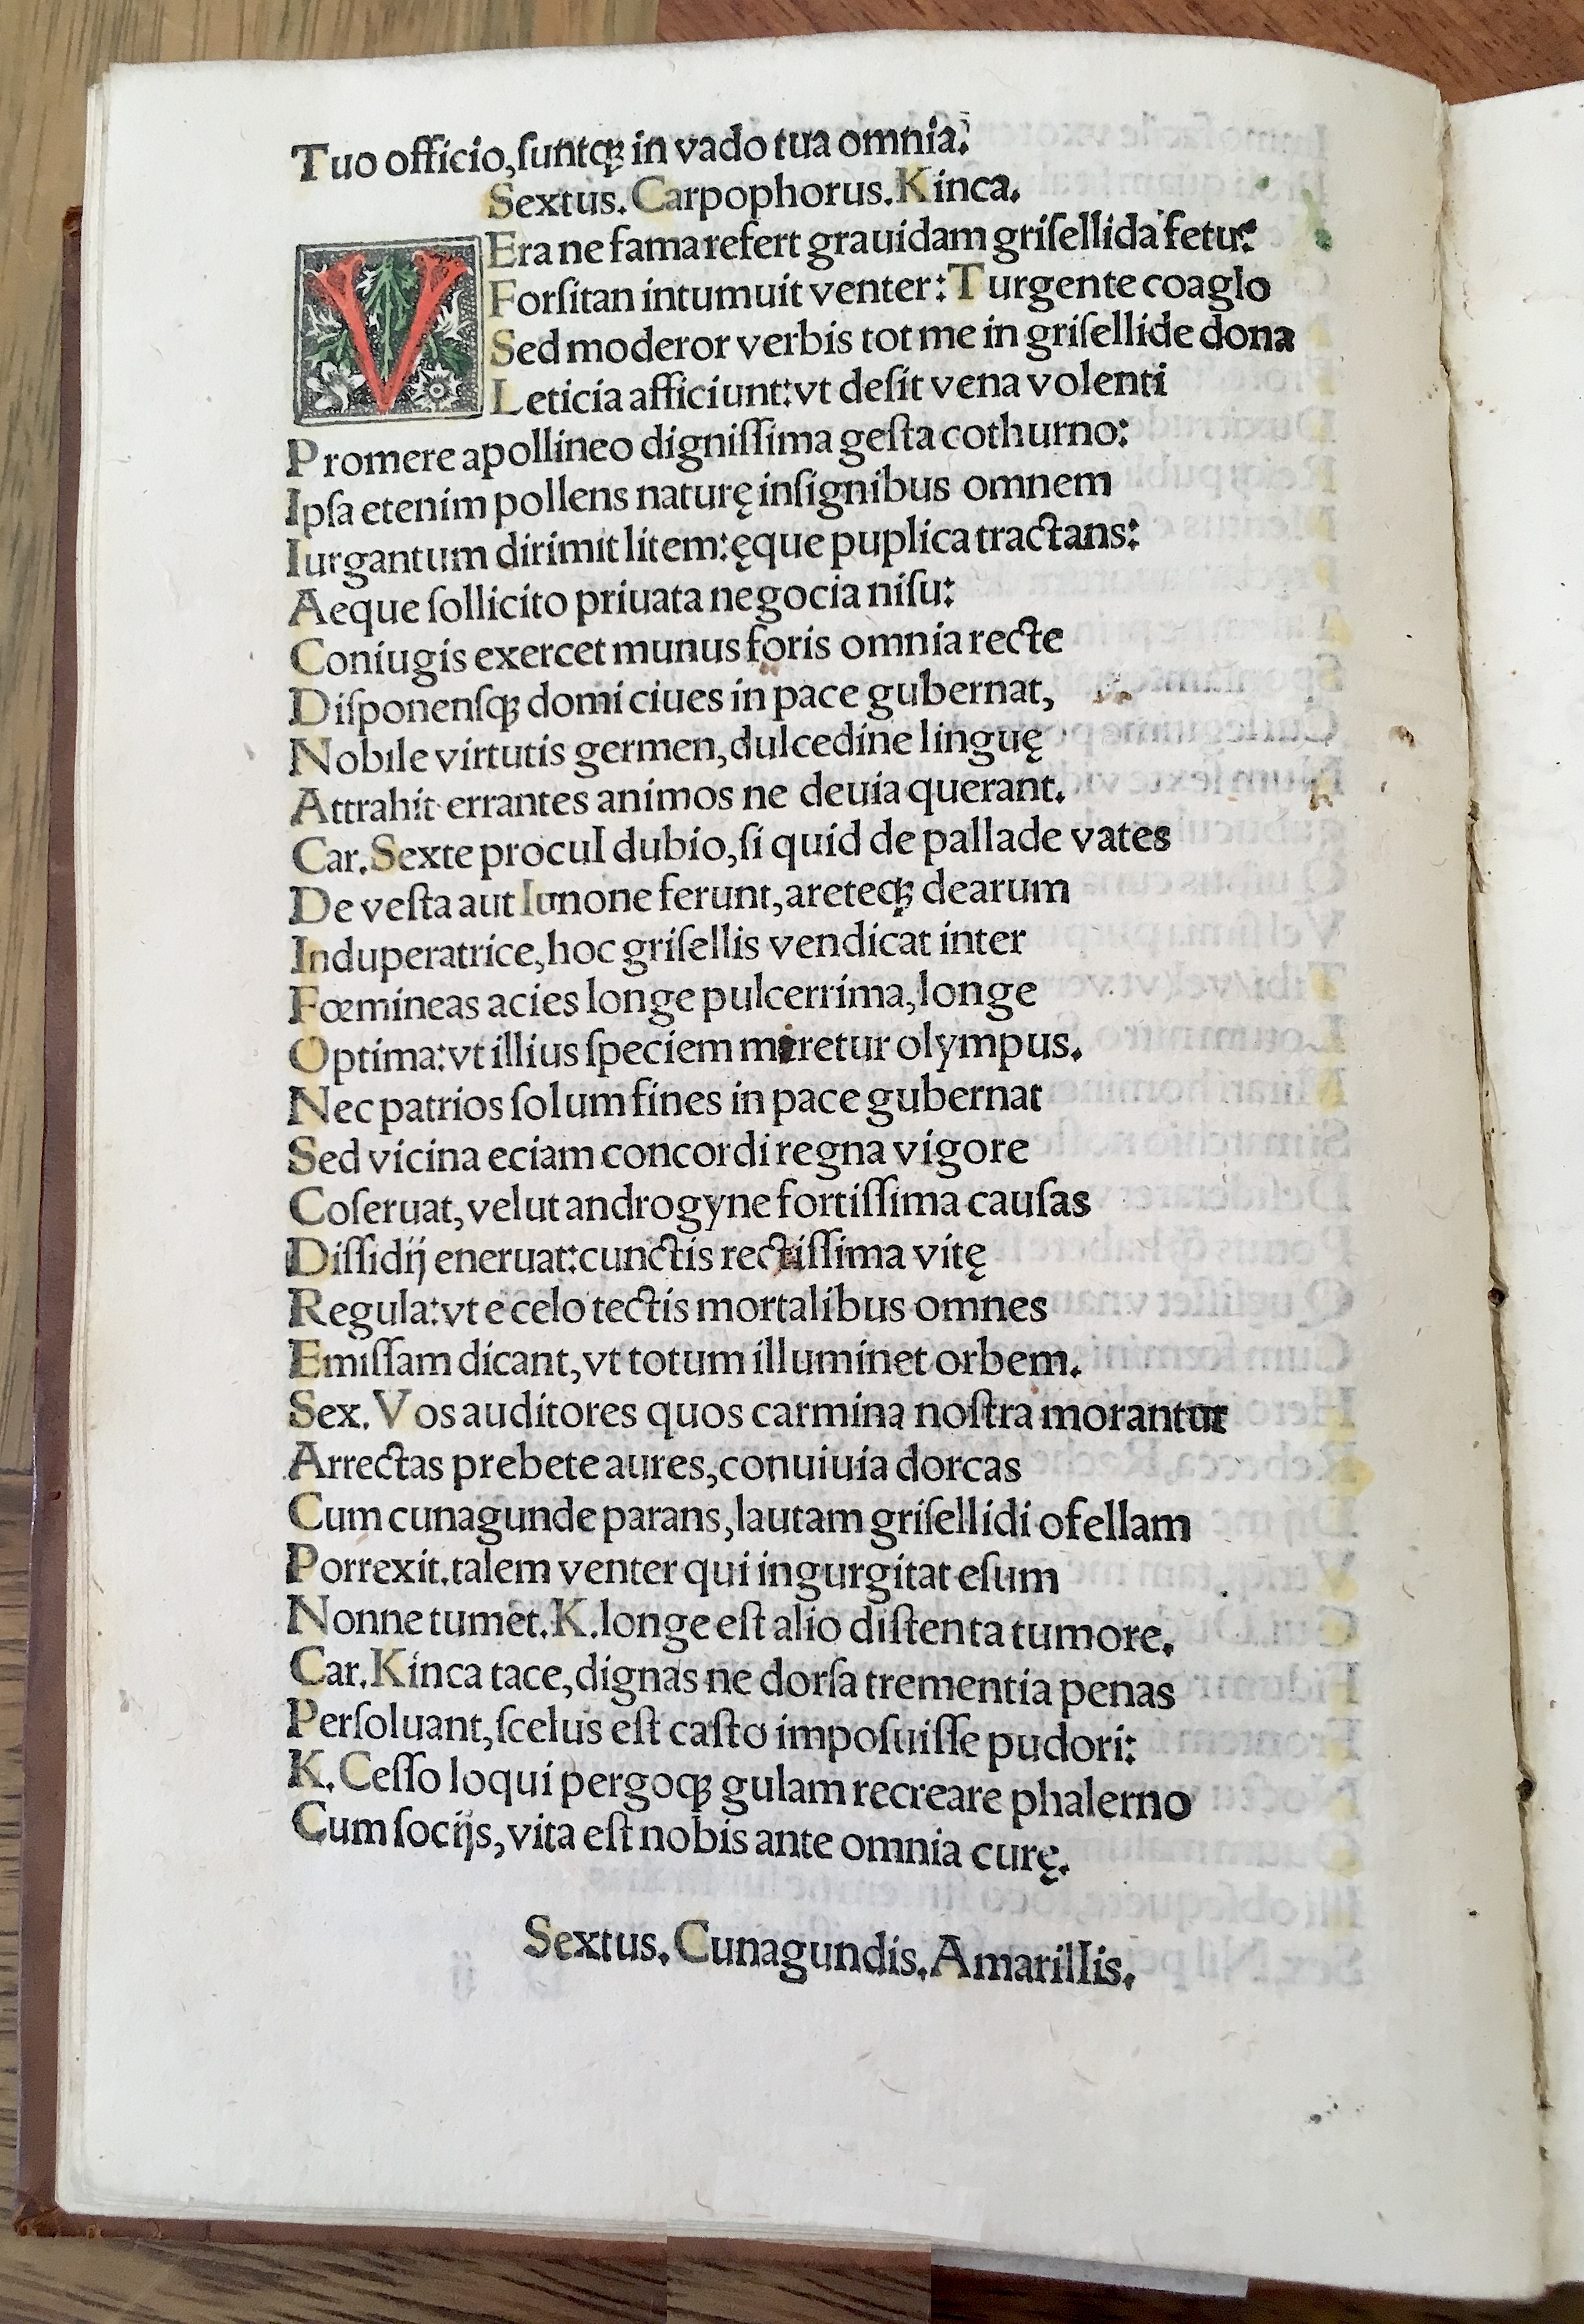 Tuo officio,ſuntqꝫ in vado tua omnia.
Sextus. Carpophorus. Kinca.
VEra ne fama refert grauidam griſellida fetu:
Forſitan intumuit venter: Turgente coaglo
Sed moderor verbis tot me in griſellide dona
Leticia afficiunt: vt deſit vena volenti
Promere apollineo digniſſima geſta cothurno:
Ipſa etenim pollens naturę inſignibus omnem
Iurgantum dirimit litem: ęque puplica tractans:
Aeque ſollicito priuata negocia niſu:
Coniugis exercet munus foris omnia recte
Diſponenſqꝫ domi ciues in pace gubernat,
Nobile virtutis germen, dulcedine linguę
Attrahit errantes animos ne deuia querant.
Car. Sexte procul dubio, ſi quid de pallade vates
De veſta aut Iunone ferunt, areteqꝫ dearum
Induperatrice, hoc griſellis vendicat inter
Fœmineas acies longe pulcerrima, longe
Optima: vt illius ſpeciem miretur olympus.
Nec patrios ſolum fines in pace gubernat
Sed vicina eciam concordi regna vigore
Coſeruat, velut androgyne fortiſſima cauſas
Diſſidij eneruat: cunctis rectiſſima vitę
Regula: vt e celo tectis mortalibus omnes
Emiſſam dicant, vt totum illuminet orbem.
Sex. Vos auditores quos carmina noſtra morantur
Arrectas prebete aures, conuiuia dorcas
Cum cunagunde parans, lautam griſellidi ofellam
Porrexit. talem venter qui ingurgitat eſum
Nonne tumet. K. longe eſt alio diſtenta tumore.
Car. Kinca tace, dignas ne dorſa trementia penas
Perſoluant, ſcelus eſt caſto impoſuiſſe pudori:
K. Ceſſo loqui pergoqꝫ gulam recreare phalerno
Cum ſocijs, vita eſt nobis ante omnia curę.
Sextus. Cunagundis. Amarillis.